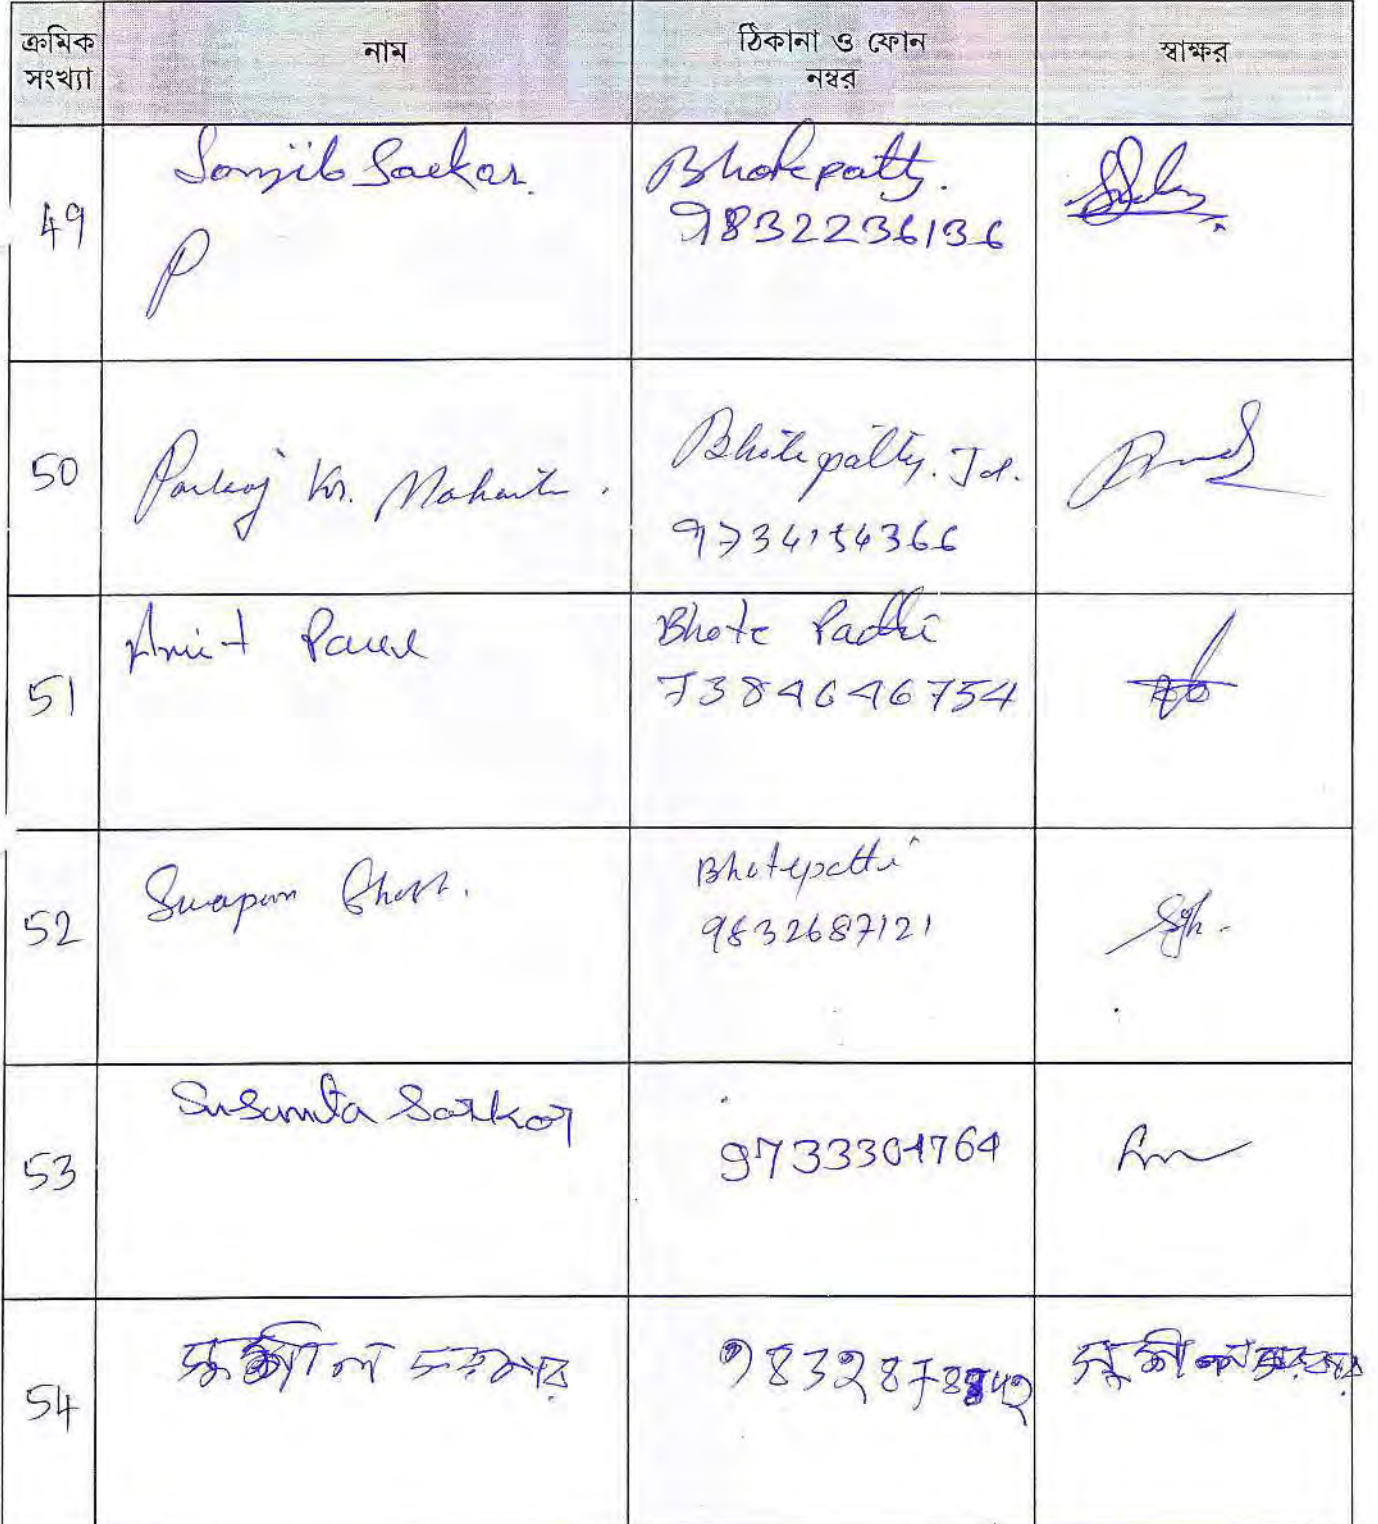 ক্রমিক সংখ্যা
নাম
ঠিকানা ও ফোন নম্বর
স্বাক্ষর
49
Sanjib Sarkar.
P
Bhotepatty.
9832236136
50
Pankaj Kr.
Bhotepatty. Jal.
9734154366
51
Amit Paul
Bhote Patti
7384646754
52
Swapan Ghosh.
Bhotepatti
9832687121
Sgh.
53
Susanta Sarkar
9733304764
54
সুশীল সরকার
সুশীল সরকার